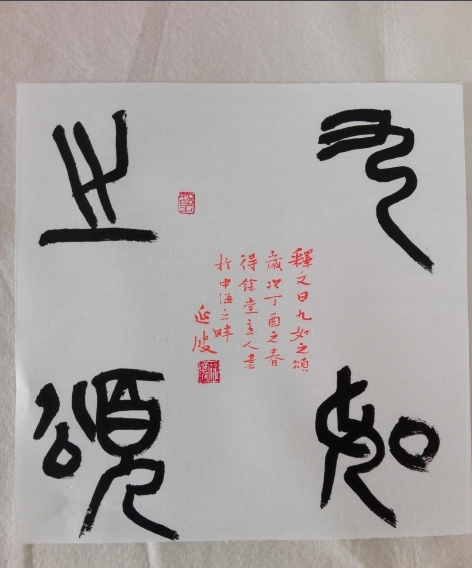 九如
之頌
釋文曰九如之頌
歲次丁酉之春
得餘堂主人書
於中海之畔
延波